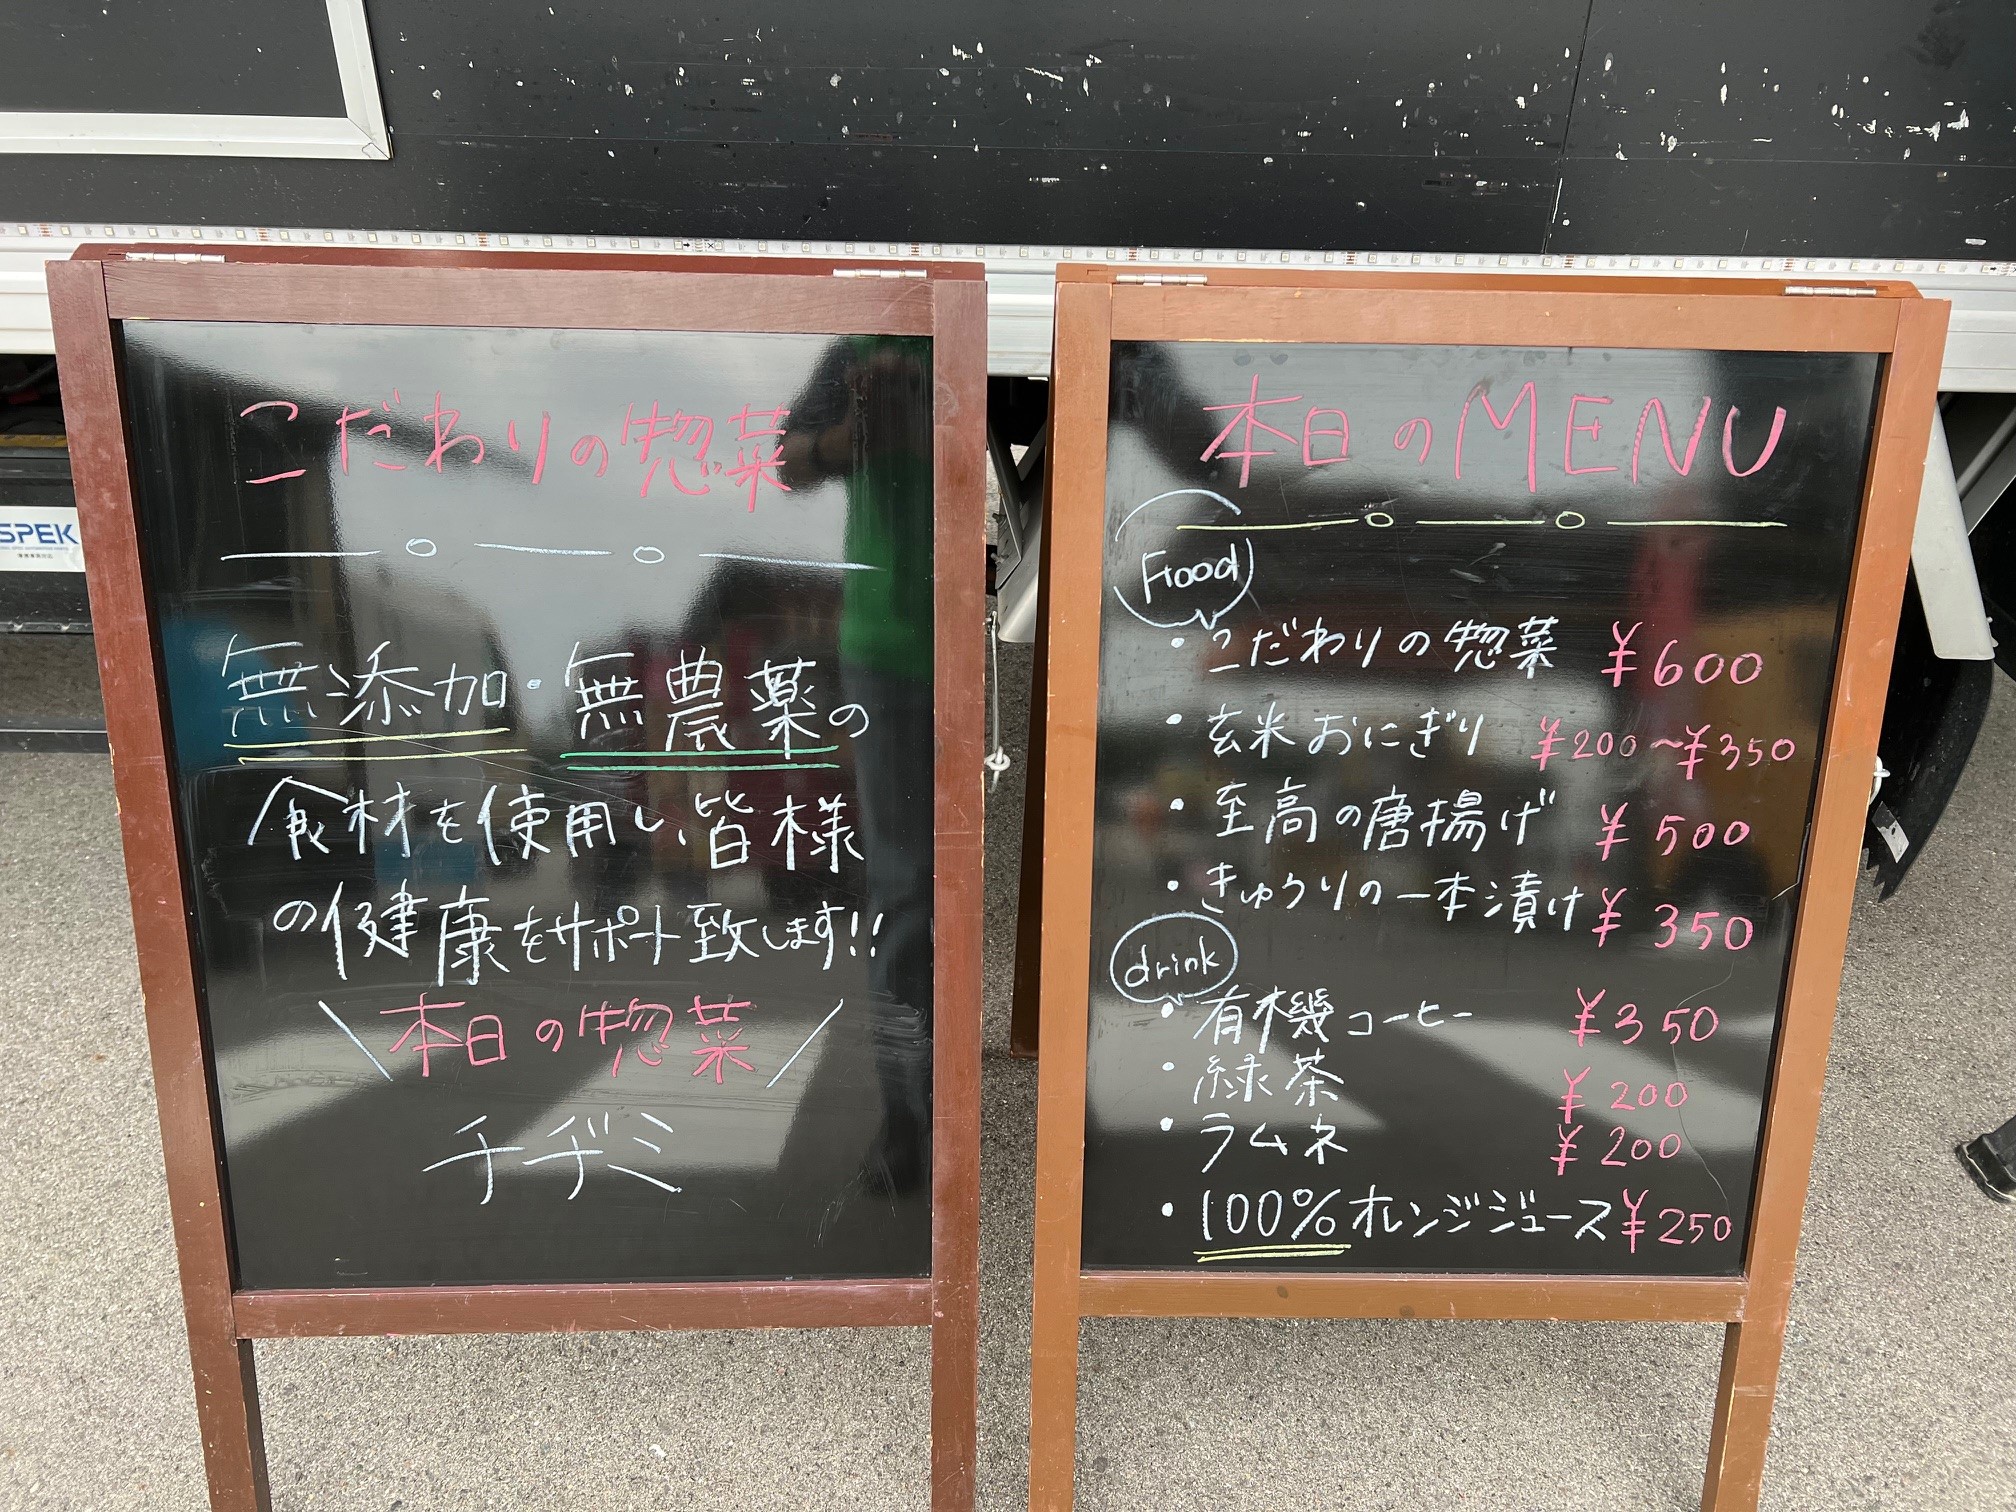 こだわりの惣菜
無添加・無農薬の
食材を使用し、皆様
の健康をサポート致します!!
\本日の惣菜/
チヂミ
本日のMENU
Food
・こだわりの惣菜 ¥600
・玄米おにぎり ¥200~¥350
・至高の唐揚げ ¥500
・きゅうりの一本漬け ¥350
drink
・有機コーヒー ¥350
・緑茶 ¥200
・ラムネ ¥200
・100%オレンジジュース ¥250
SPEK